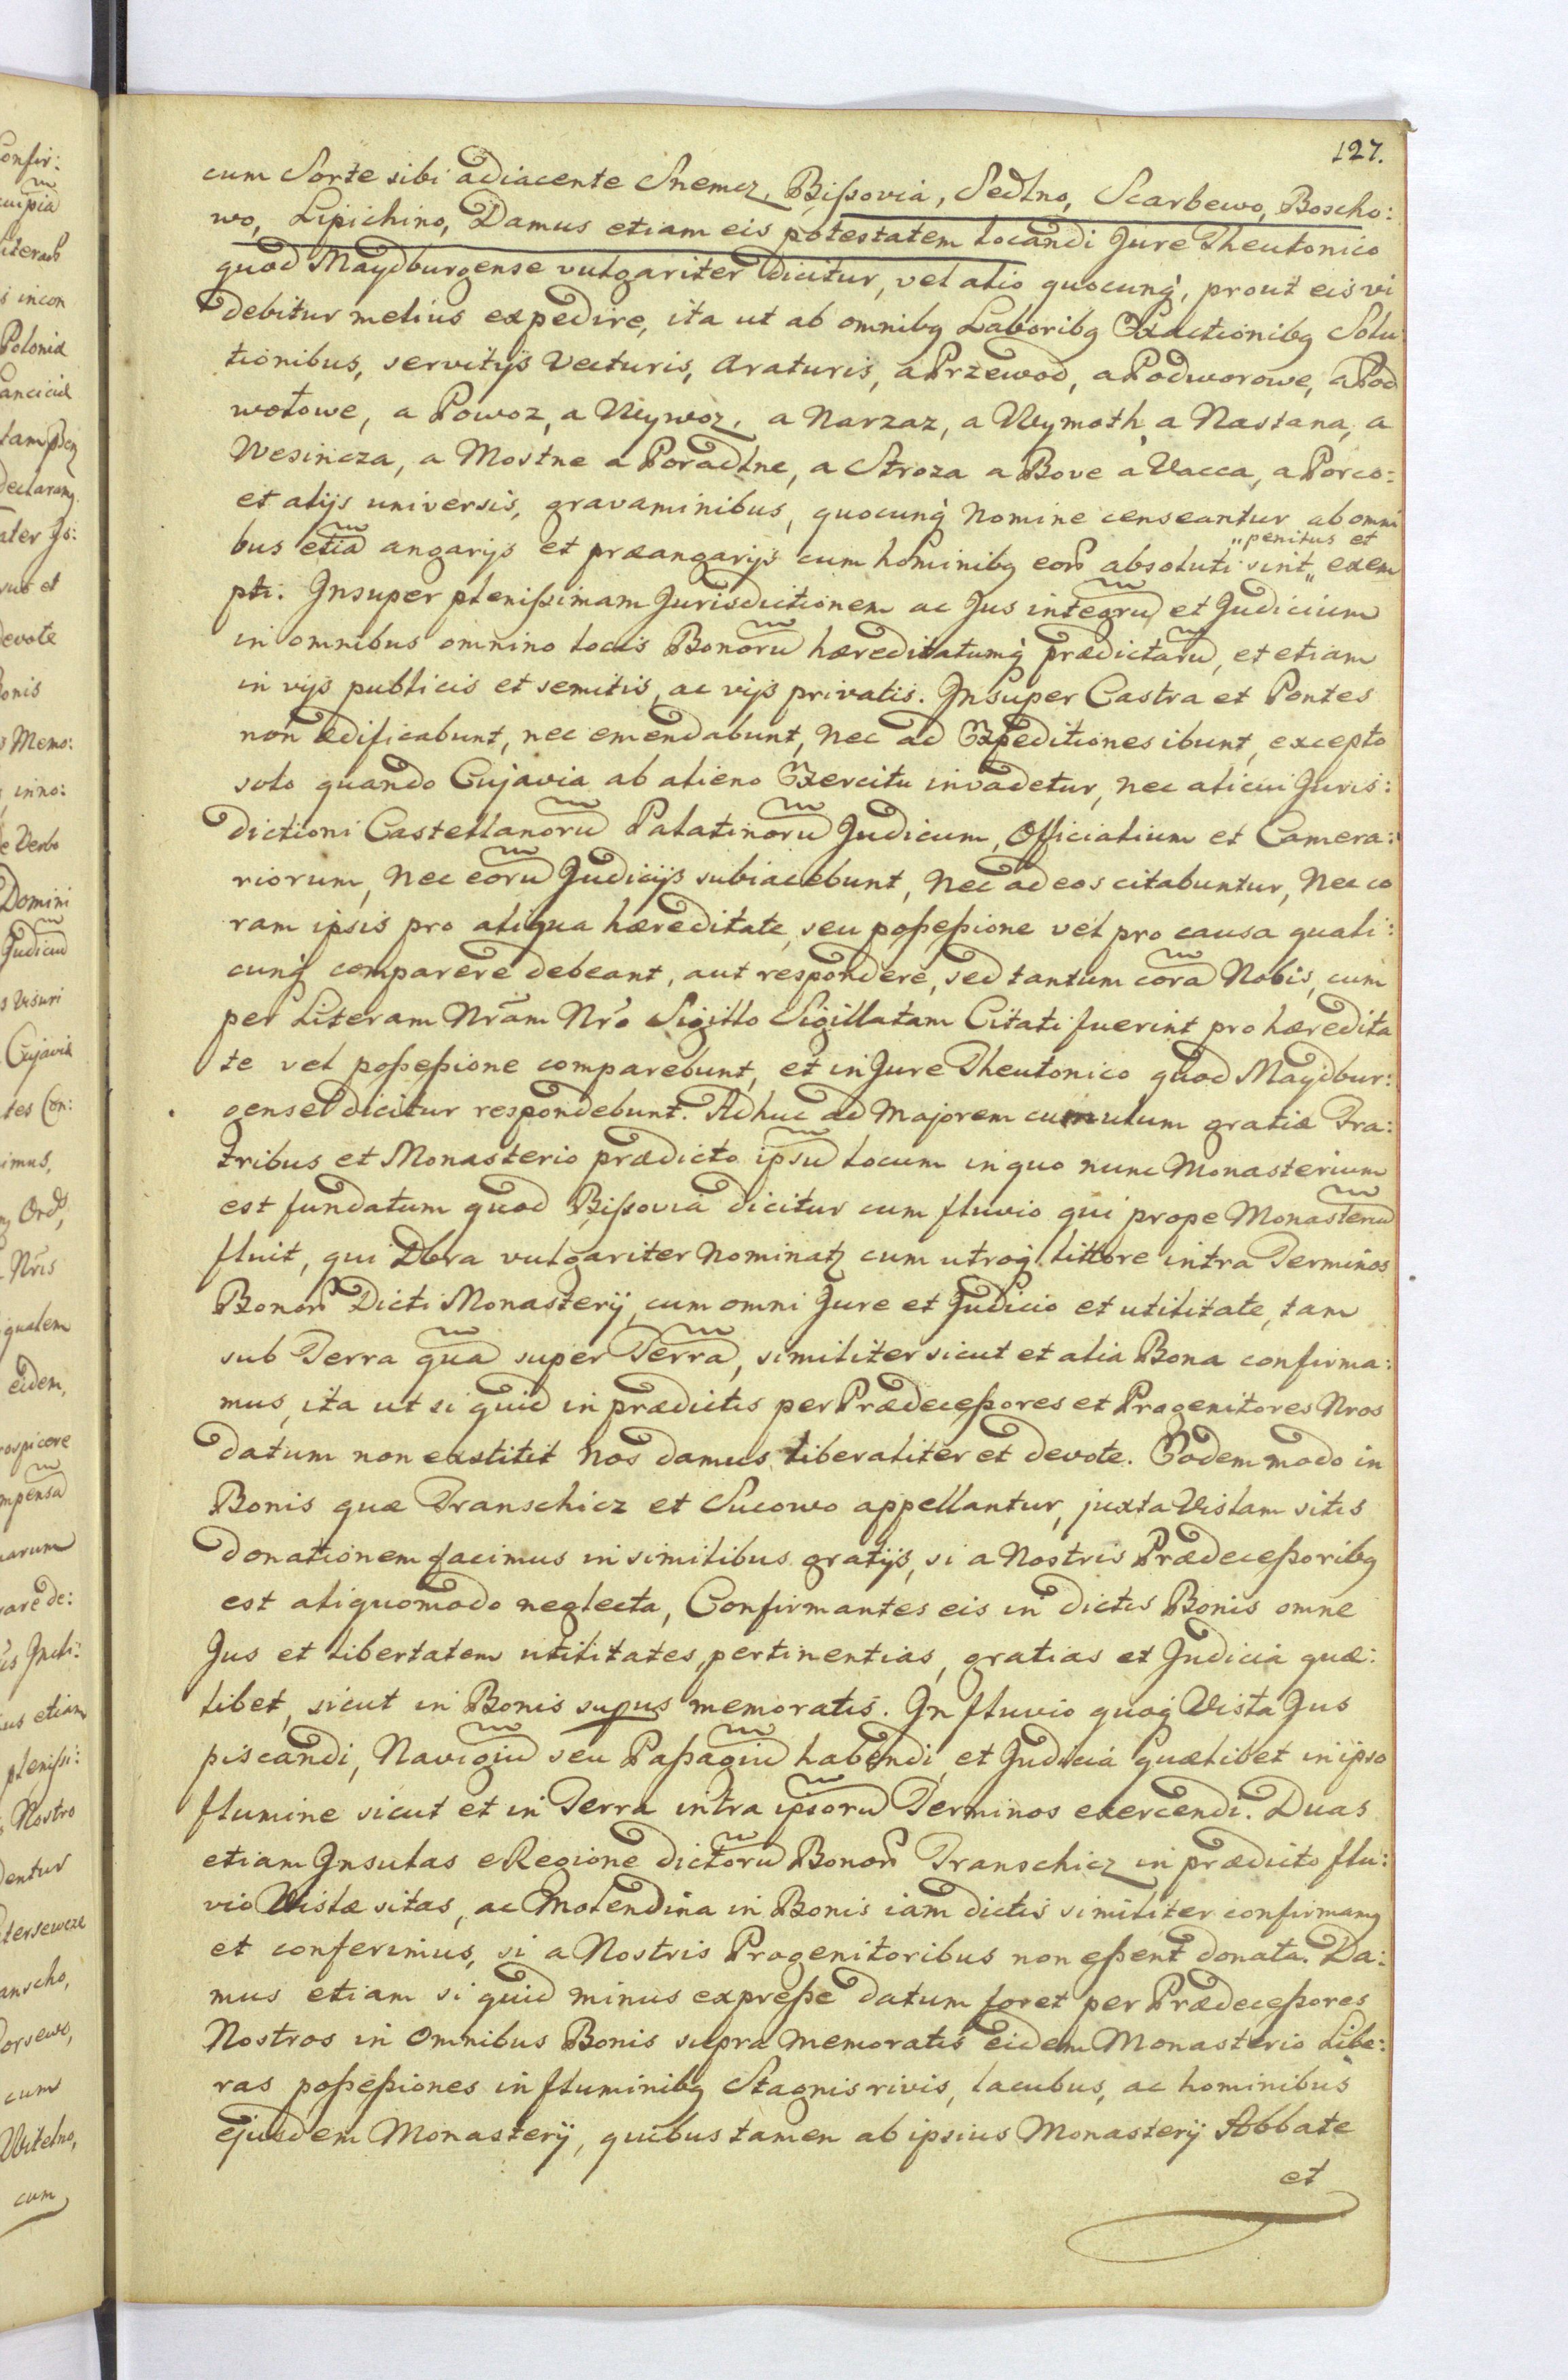 127.
cum Sorte sibi adiacente Snemcz, Bißovia, Sedlno, Scarbewo, Boscho:
wo, Lipichino, Damus etiam eis potestatem locandi Jure Theutonico
quod Maydburgense vulgariter dicitur, vel alio quocunq, prout eis vi
debitur melius expedire, ita ut ab omnibq Laboribq Exactionibq Solu
tionibus, servitijs Vecturis, Araturis, a Przewod, a Podworowe, a Pod
wołowe, a Powoz, a Wywoz, a Narzaz, a Wymoth, a Nastana, a
Wesincza, a Mostne a Poradlne, a Stroza a Bove a Vacca, a Porco:
et alijs universis, gravaminibus, quocunq Nomine censeantur ab omni
bus etiã angarijs et præangarijs cum hominibq eor absoluti sint „penitus et exem
pti. Insuper plenißimam Jurisdictionem ac Jus integrũ et Judicium
in omnibus omnino locis Bonorũ hæreditatumq prædictarũ, et etiam
in vijs publicis et semitis, ac vijs privatis. Insuper Castra et Pontes
non ædificabunt, nec emendabunt, Nec ad Expeditiones ibunt, excepto
solo quando Cujavia ab alieno Exercitu invadetur, nec alicui Juris:
dictioni Castellanorũ Palatinorũ Judicum, Officialium et Camera:
riorum, Nec eorũ Judicijs subiacebunt, Nec ad eos citabuntur, Nec co
ram ipsis pro aliqua hæreditate, seu poßeßione vel pro causa quali:
cunq comparere debeant, aut respondere, sed tantum corã Nobis, cum
per Literam Nrãm Nrõ Sigillo Sigillatam Citati fuerint pro hæredita
te vel poßeßione comparebunt, et in Jure Theutonico quod Maydbur:
gense dicitur respondebunt. Adhuc ad Majorem cumulum gratiæ Fra:
tribus et Monasterio prædicto ipsũ locum in quo nunc Monasterium
est fundatum quod Bißovia dicitur cum fluvio qui prope Monasteriũ
fluit, qui Dbra vulgariter Nominatz cum utroq littore intra Terminos
Bonor Dicti Monasterij, cum omni Jure et Judicio et utilitate, tam
sub Terra quã super Terrã, similiter sicut et alia Bona confirma:
mus, ita ut si quid in prædictis per Prædeceßores et Progenitores Nros
datum non exstitit Nos damus liberaliter et devote. Eodem modo in
Bonis quæ Transchicz et Sucowo appellantur, juxta Vislam sitis
donationem facimus in similibus gratijs, si a Nostris Prædeceßoribq
est aliquomodo neglecta, Confirmantes eis in dictis Bonis omne
Jus et libertatem utilitates, pertinentias, gratias et Judicia quæ:
libet, sicut in Bonis supus memoratis. In fluvio quoq Visla Jus
piscandi, Navigiũ seu Paßagiũ habendi, et Judicia quælibet in ipso
flumine sicut et in Terra intra ipsorũ Terminos exercendi. Duas
etiam Insulas e Regione dictorũ Bonor Transchicz in prædicto flu:
vio Vislæ sitas, ac Molendina in Bonis iam dictis similiter confirmamq
et conferimus, si a Nostris Progenitoribus non eßent donata. Da:
mus etiam si quid minus expreße datum foret per Prædeceßores
Nostros in Omnibus Bonis supra memoratis eidem Monasterio Libe:
ras poßeßiones in fluminibq Stagnis rivis, lacubus, ac hominibus
ejusdem Monasterij, quibus tamen ab ipsius Monasterij Abbate
et